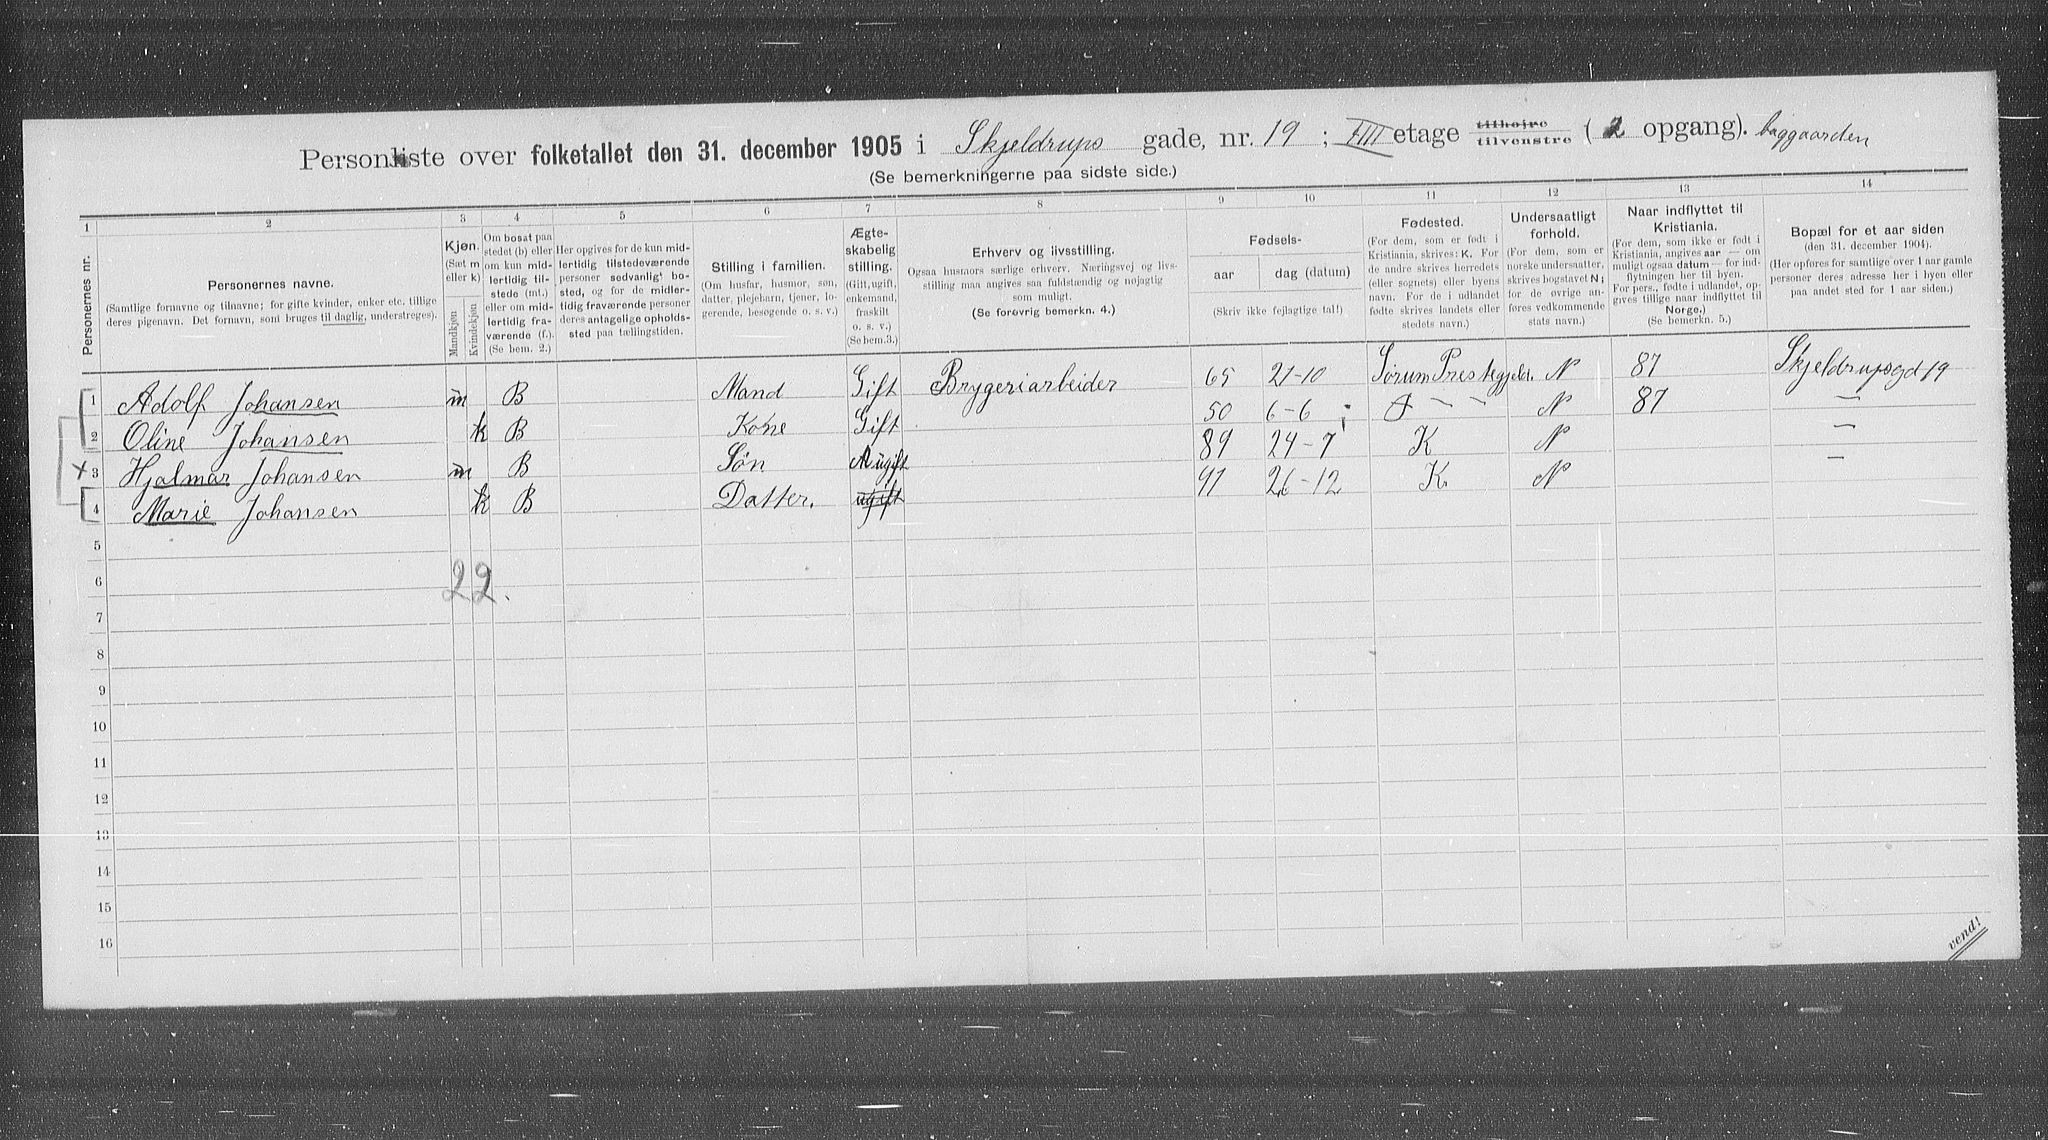 Personliste over folketallet den 31. december 1905 i Skjeldrups gade, nr. 19 ; IIII etage tilhøire tilvenstre (2 opgang). baggaarden
(Se bemerkningerne paa sidste side.)
1 2 3 4 5 6 7 8 9 10 11 12 13 14
Personernes nr.
Personernes navne.
(Samtlige fornavne og tilnavne; for gifte kvinder, enker etc. tillige
deres pigenavn. Det fornavn, som bruges til daglig, understreges).
Kjøn.
(Sæt m
eller k)
Mandkjøn
Kvindekjøn
Om bosat paa
stedet (b) eller
om kun mid-
lertidig til-
stede (mt.)
eller om mid-
lertidig fra-
værende (f.)
(Se bem. 2.)
Her opgives for de kun mid-
lertidig tilstedeværende
personer sedvanlig bo-
sted, og for de midler-
tidig fraværende personer
deres antagelige opholds-
sted paa tællingstiden.
Stilling i familien.
(Om husfar, husmor, søn,
datter, plejebarn, tjener, lo-
gerende, besøgende o. s. v.)
Ægte-
skabelig
stilling.
(Gift, ugift,
enkemand,
fraskilt
o. s. v.)
(Se bem.3.)
Erhverv og livsstilling.
Ogsaa husmors særlige erhverv. Næringsvej og livs-
stilling maa angives saa fuldstændig og nøjagtig
som muligt.
(Se forøvrig bemerkn. 4.)
Fødsels-
aar
dag (datum)
(Skriv ikke fejlagtige tal!)
Fødested.
(For dem, som er født i
Kristiania, skrives: K. For
de andre skrives herredets
(eller sognets) eller byens
navn. For de i udlandet
fødte skrives landets eller
stedets navn.)
Undersaatligt
forhold.
(For dem, som er
norske undersaatter,
skrives bogstavet N;
for de øvrige an-
føres vedkommende
stats navn.)
Naar indflyttet til
Kristiania.
(For dem, som ikke er født i
Kristiania, angives aar — om
muligt ogsaa datum — for ind-
flytningen her til byen.
For pers., fødte i udlandet, op-
gives tillige naar indflyttet til
Norge.)
(Se bemerkn. 5.)
Bopæl for et aar siden
(den 31. december 1904).
(Her opføres for samtlige over 1 aar gamle
personer deres adresse her i byen eller
paa andet sted for 1 aar siden.)
1 Adolf Johansen m B Mand Gift Brygeriarbeider 65 21-10 Sørum Prestegjeld. N 87 Skjeldrupsgd 19
2 Oline Johansen k B Kone Gift 50 6-6 N 87 —
3 Hjalmar Johansen m B Søn ugift 89 24-7 K N —
4 Marie Johansen k B Datter. ugift 91 26-12 K N —
5
6 22.
7
8
9
10
11
12
13
14
15
16
vend!